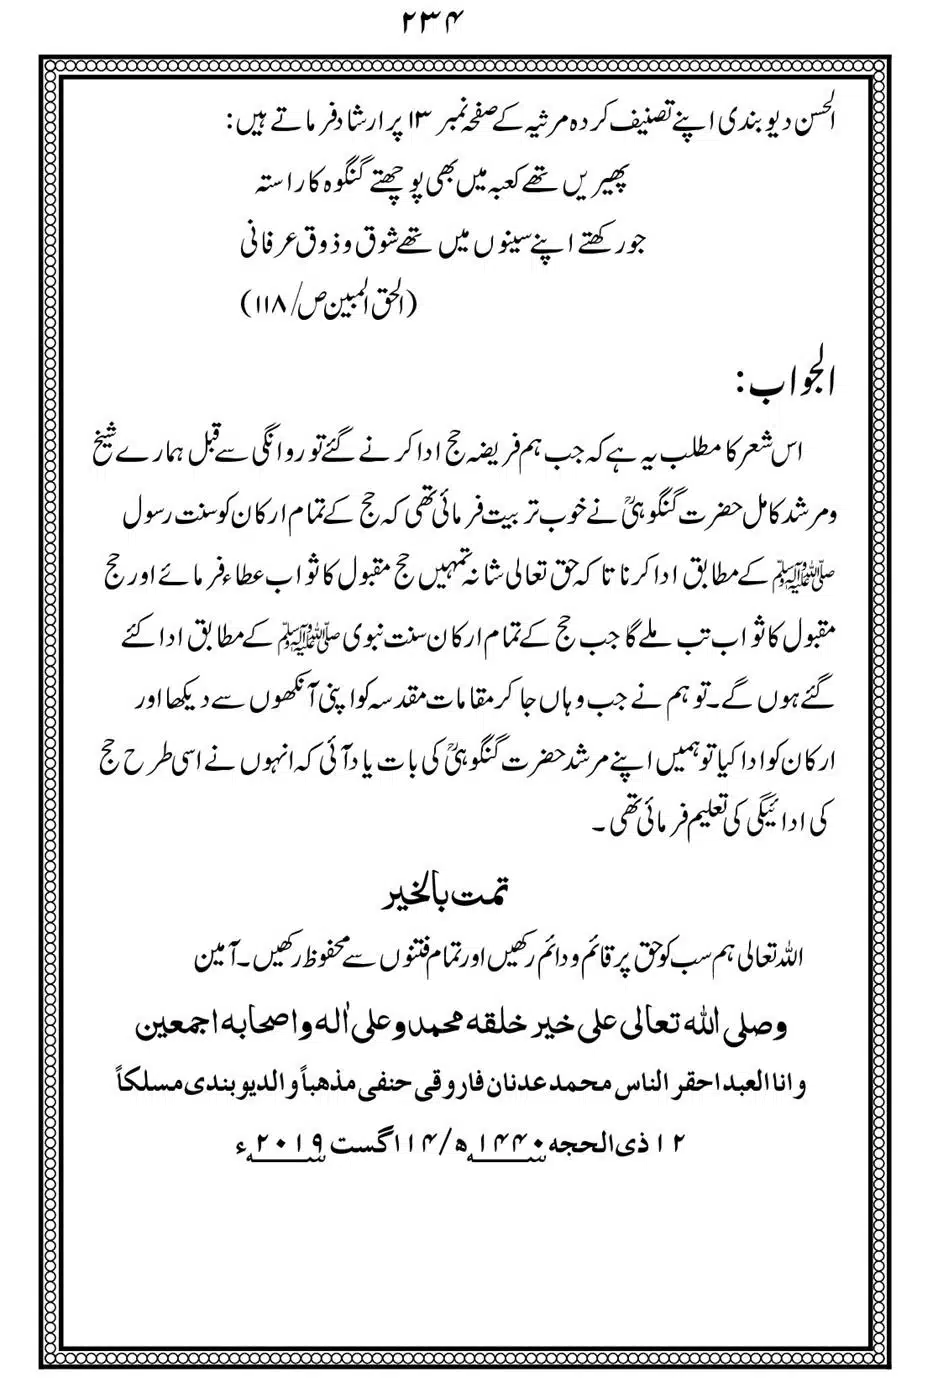 ۲۳۴
الحسن دیوبندی اپنے تصنیف کردہ مرثیہ کے صفحہ نمبر ۱۳ پر ارشاد فرماتے ہیں:
پھیریں تھے کعبہ میں بھی پوچھتے گنگوہ کا راستہ
جو رکھتے اپنے سینوں میں تھے شوق و ذوق عرفانی
(الحق المبین ص/۱۱۸)
الجواب:
اس شعر کا مطلب یہ ہے کہ جب ہم فریضہ حج ادا کرنے گئے تو روانگی سے قبل ہمارے شیخ
ومرشد کامل حضرت گنگوہیؒ نے خوب تربیت فرمائی تھی کہ حج کے تمام ارکان کو سنت رسول
ﷺ کے مطابق ادا کرنا تاکہ حق تعالی شانہ تمہیں حج مقبول کا ثواب عطاء فرمائے اور حج
مقبول کا ثواب تب ملے گا جب حج کے تمام ارکان سنت نبوی ﷺ کے مطابق ادا کئے
گئے ہوں گے۔ تو ہم نے جب وہاں جا کر مقامات مقدسہ کو اپنی آنکھوں سے دیکھا اور
ارکان کو ادا کیا تو ہمیں اپنے مرشد حضرت گنگوہیؒ کی بات یاد آئی کہ انہوں نے اسی طرح حج
کی ادائیگی کی تعلیم فرمائی تھی۔
تمت بالخیر
اللہ تعالی ہم سب کو حق پر قائم و دائم رکھیں اور تمام فتنوں سے محفوظ رکھیں۔ آمین
وصلی اللہ تعالی علی خیر خلقه محمد وعلی اٰله واصحابه اجمعین
وانا العبد احقر الناس محمد عدنان فاروقی حنفی مذھباً والدیوبندی مسلکاً
۱۲ ذی الحجه ۱۴۴۰ھ/۱۴ اگست ۲۰۱۹ء